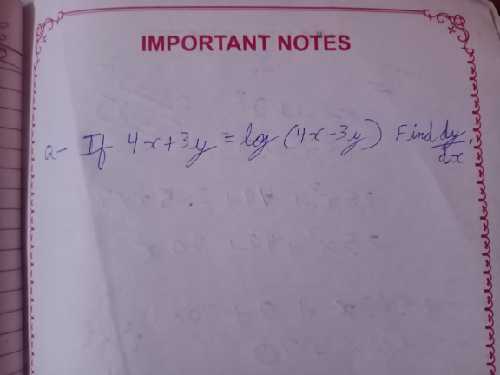 IMPORTANT NOTES
Q- If 4x+3y = log (4x-3y) Find dy/dx.